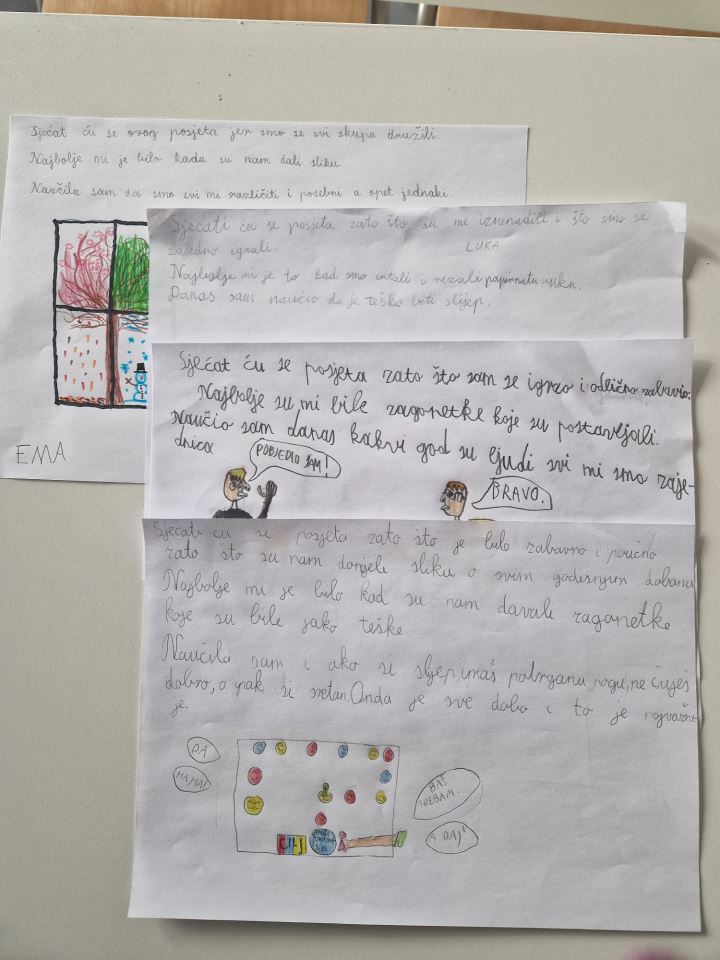 Sjećat ću se ovog posjeta jer smo se svi skupa družili.
Najbolje mi je bilo kada su nam dali sliku
Naučila sam da smo svi mi različiti i posebni a opet jednaki.
EMA
Sjećati ću se posjeta zato što su me iznenadili i što smo se
zajedno igrali.
LUKA
Najbolje mi je to kad smo crtali i rezali papirnatu ruku.
Danas sam naučio da je teško biti slijep.
Sjećat ću se posjeta zato što sam se igrao i odlično zabavio.
Najbolje su mi bile zagonetke koje su postavljali.
Naučio sam danas kakvi god su ljudi svi mi smo zaje-
dnica
POBJEDIO SAM!
BRAVO.
Sjećati ću se posjeta zato što je bilo zabavno i poučno
zato što su nam donjele sliku o svim godišnjim dobama
Najbolje mi je bilo kad su nam davali zagonetke
koje su bile jako teške.
Naučila sam i ako si slijep, imaš potrganu nogu, ne čuješ
dobro, a ipak si sretan. Onda je sve dobo i to je najvažni
je.
DA
HAHA!
BAŠ
TREBAM.
A DAJ!
CILJ